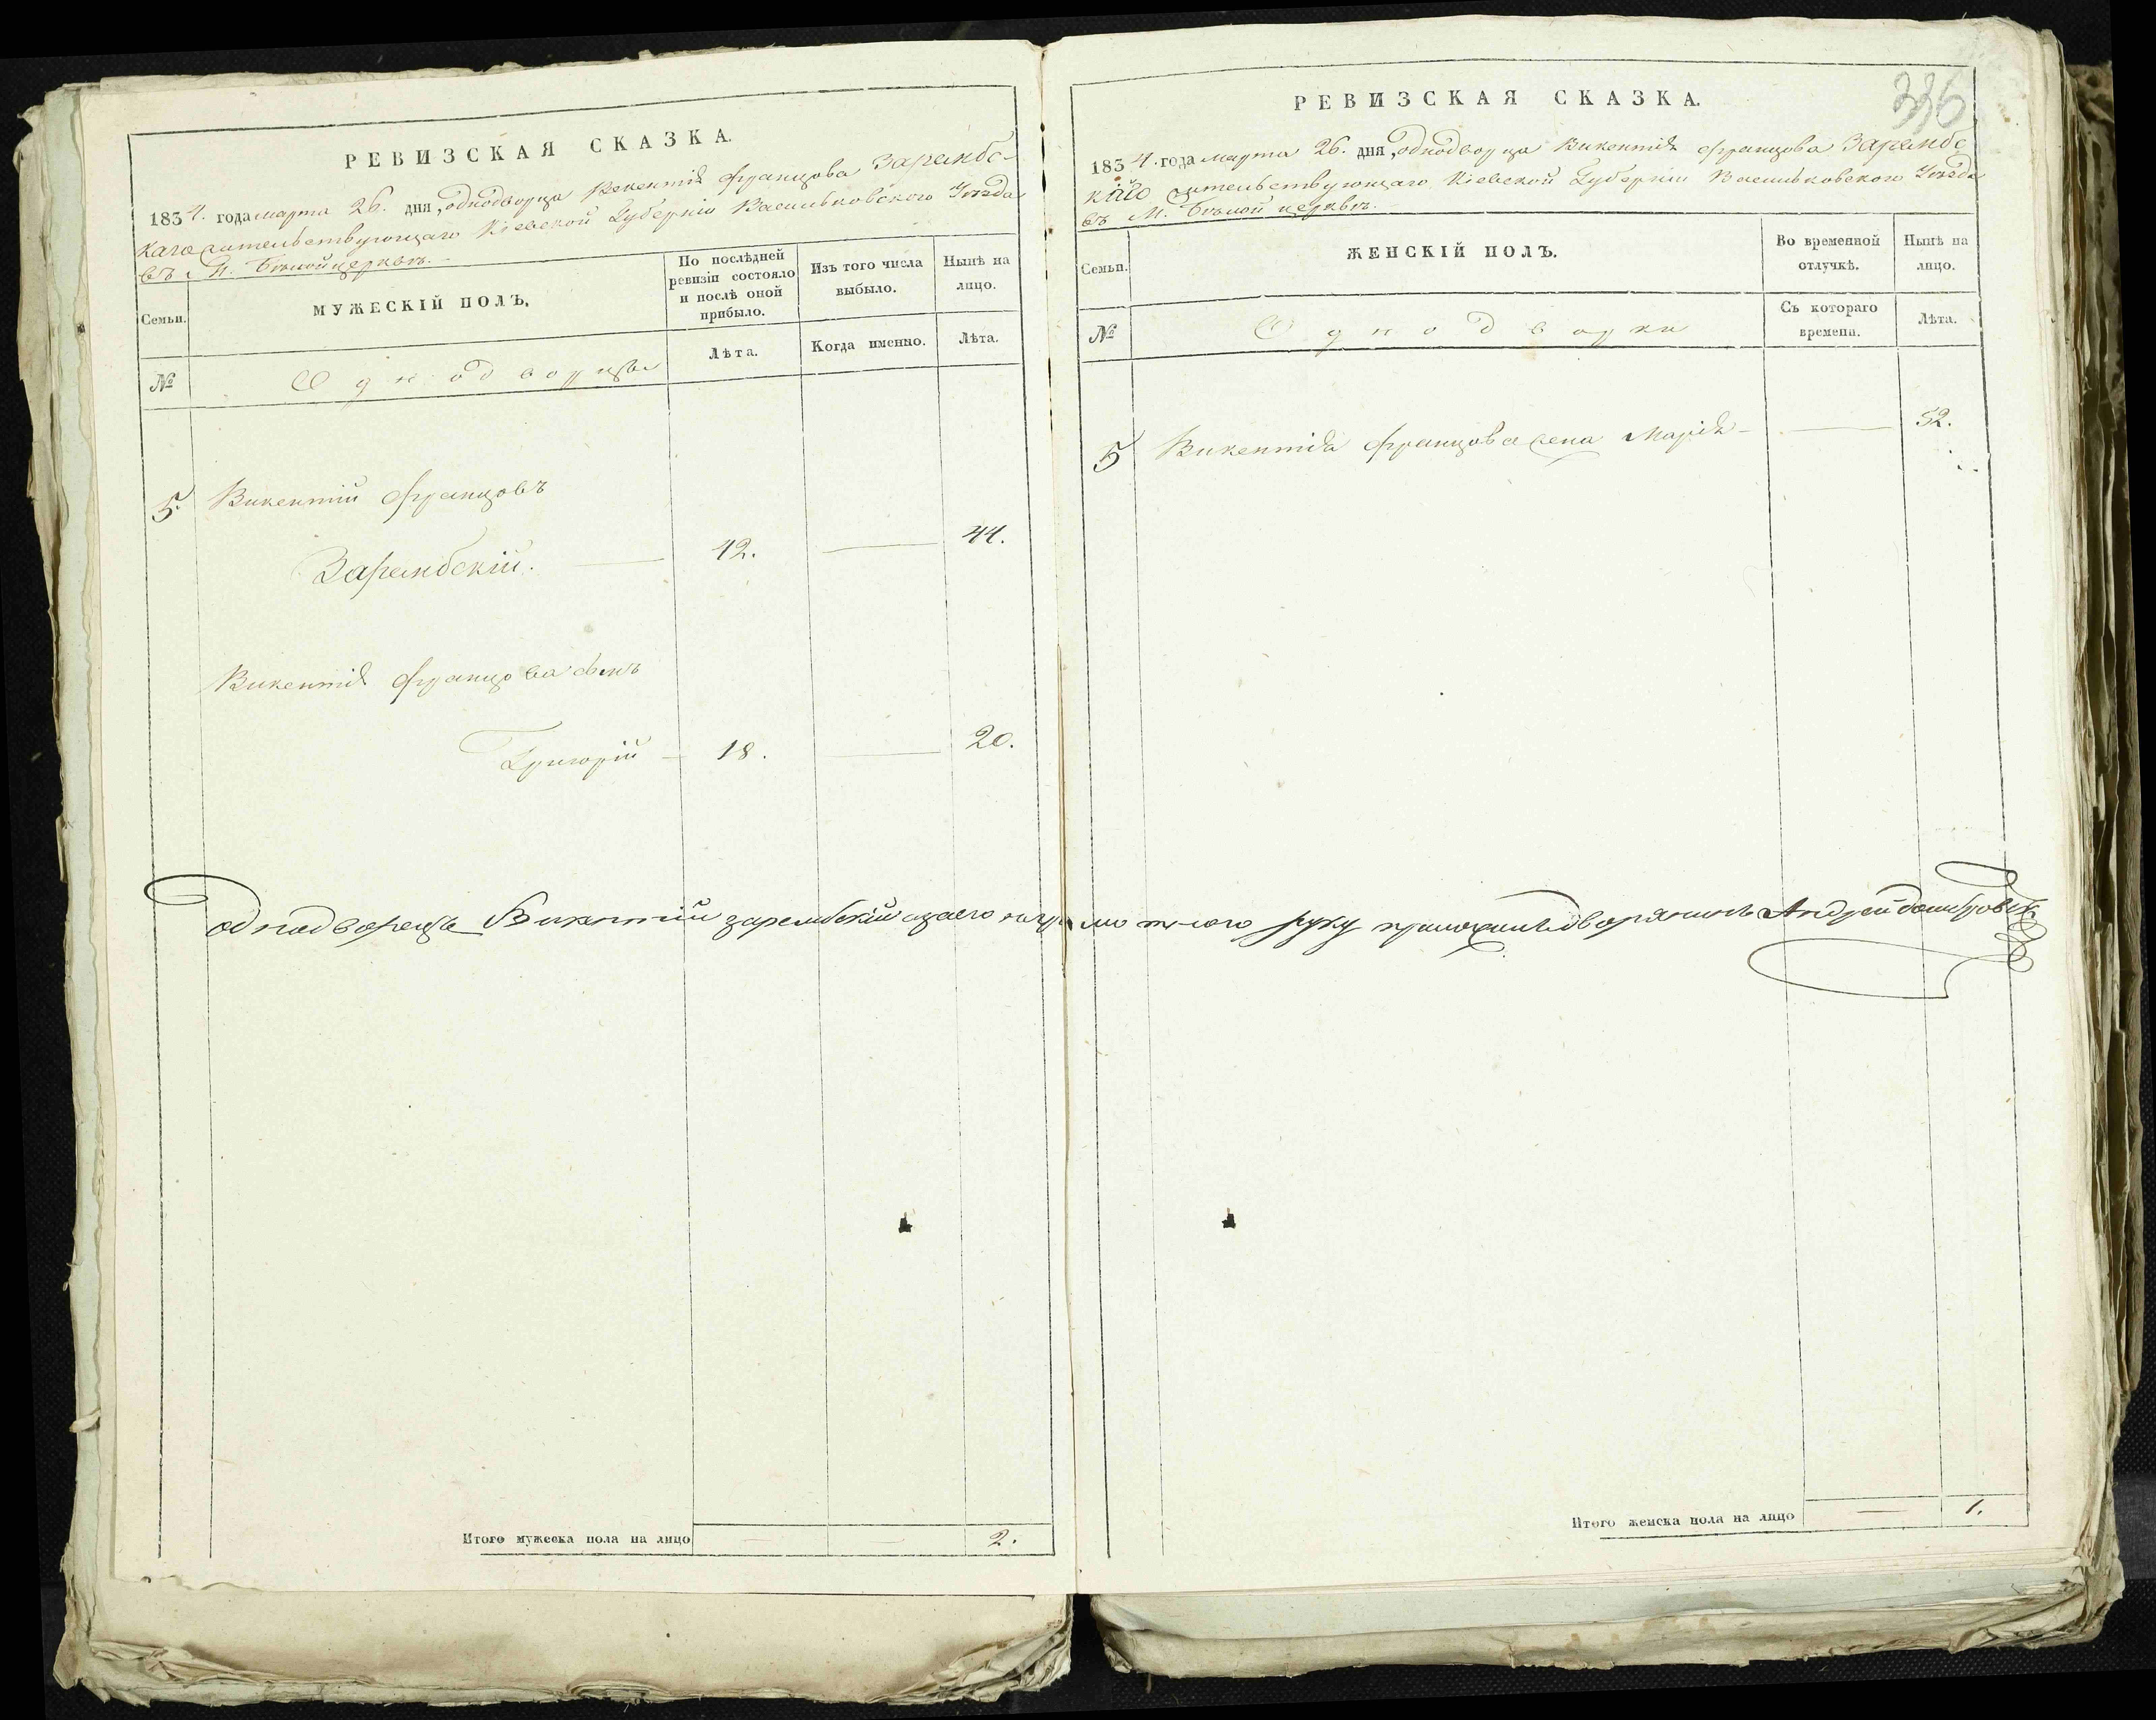 РЕВИЗСКАЯ СКАЗКА.
1834. года марта 26. дня, однодворца Викентія Францова Зарембс-
каго жительствующаго Кіевской Губерніи Васильковскаго Уѣзда
въ М. Бѣлой церквѣ.
Семьи.
МУЖЕСКІЙ ПОЛЪ.
По послѣдней ревизіи состояло и послѣ оной прибыло.
Изъ того числа выбыло.
Нынѣ на лицо.
№
Однодворцы
Лѣта.
Когда именно.
Лѣта.
5. Викентій Францовъ
Зарембскій. — 42. — 44.
Викентія Францова сынъ
Григорій — 18. — 20.
Итого мужеска пола на лицо — — 2.
336
РЕВИЗСКАЯ СКАЗКА.
1834. года марта 26. дня, однодворца Викентія Францова Зарембс
каго жительствующаго Кіевской Губерніи Васильковскаго Уѣзда
въ М. Бѣлой церквѣ.
Семьи.
ЖЕНСКІЙ ПОЛЪ.
Во временной отлучкѣ.
Нынѣ на лицо.
№
Однодворки
Съ котораго времени.
Лѣта.
5 Викентія Францова жена Марія — — 52.
однодворецъ Викентій зарембскій азаего неграмотнаго руку приложилъ дворянинъ Андрей
Итого женска пола на лицо — 1.